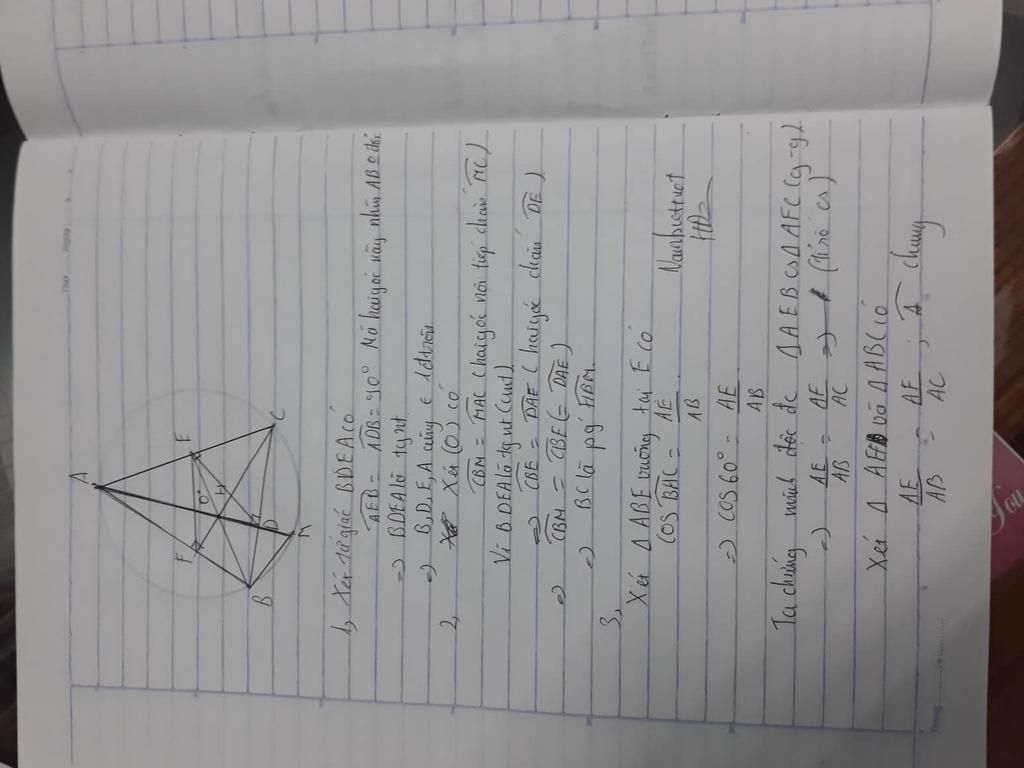 A
F
E
O
H
B
D
C
M
1, Xét tứ giác BDEA có
AEB = ADB = 90° Mà hai góc này nhìn AB o đổi
=> BDEA là tgnt
=> B, D, E, A cùng ∈ 1 đtròn
2, Xét (O) có
CBM = MAC (hai góc nội tiếp chắn MC)
Vì BDEA là tgnt (cmt)
=> CBE = DAE (hai góc chắn DE)
=> CBM = CBE (= DAE)
=> BC là pg HBM
3,
Xét Δ ABE vuông tại E có
cos BAC = AE / AB
Nambettruot
HD2
=> cos 60° = AE / AB
Ta chứng minh được Δ AEB ∽ Δ AFC (g-g)
=> AE / AB = AF / AC => (tỉ số cs)
Xét Δ AEF và Δ ABC có
AE / AB = AF / AC ; A chung
You